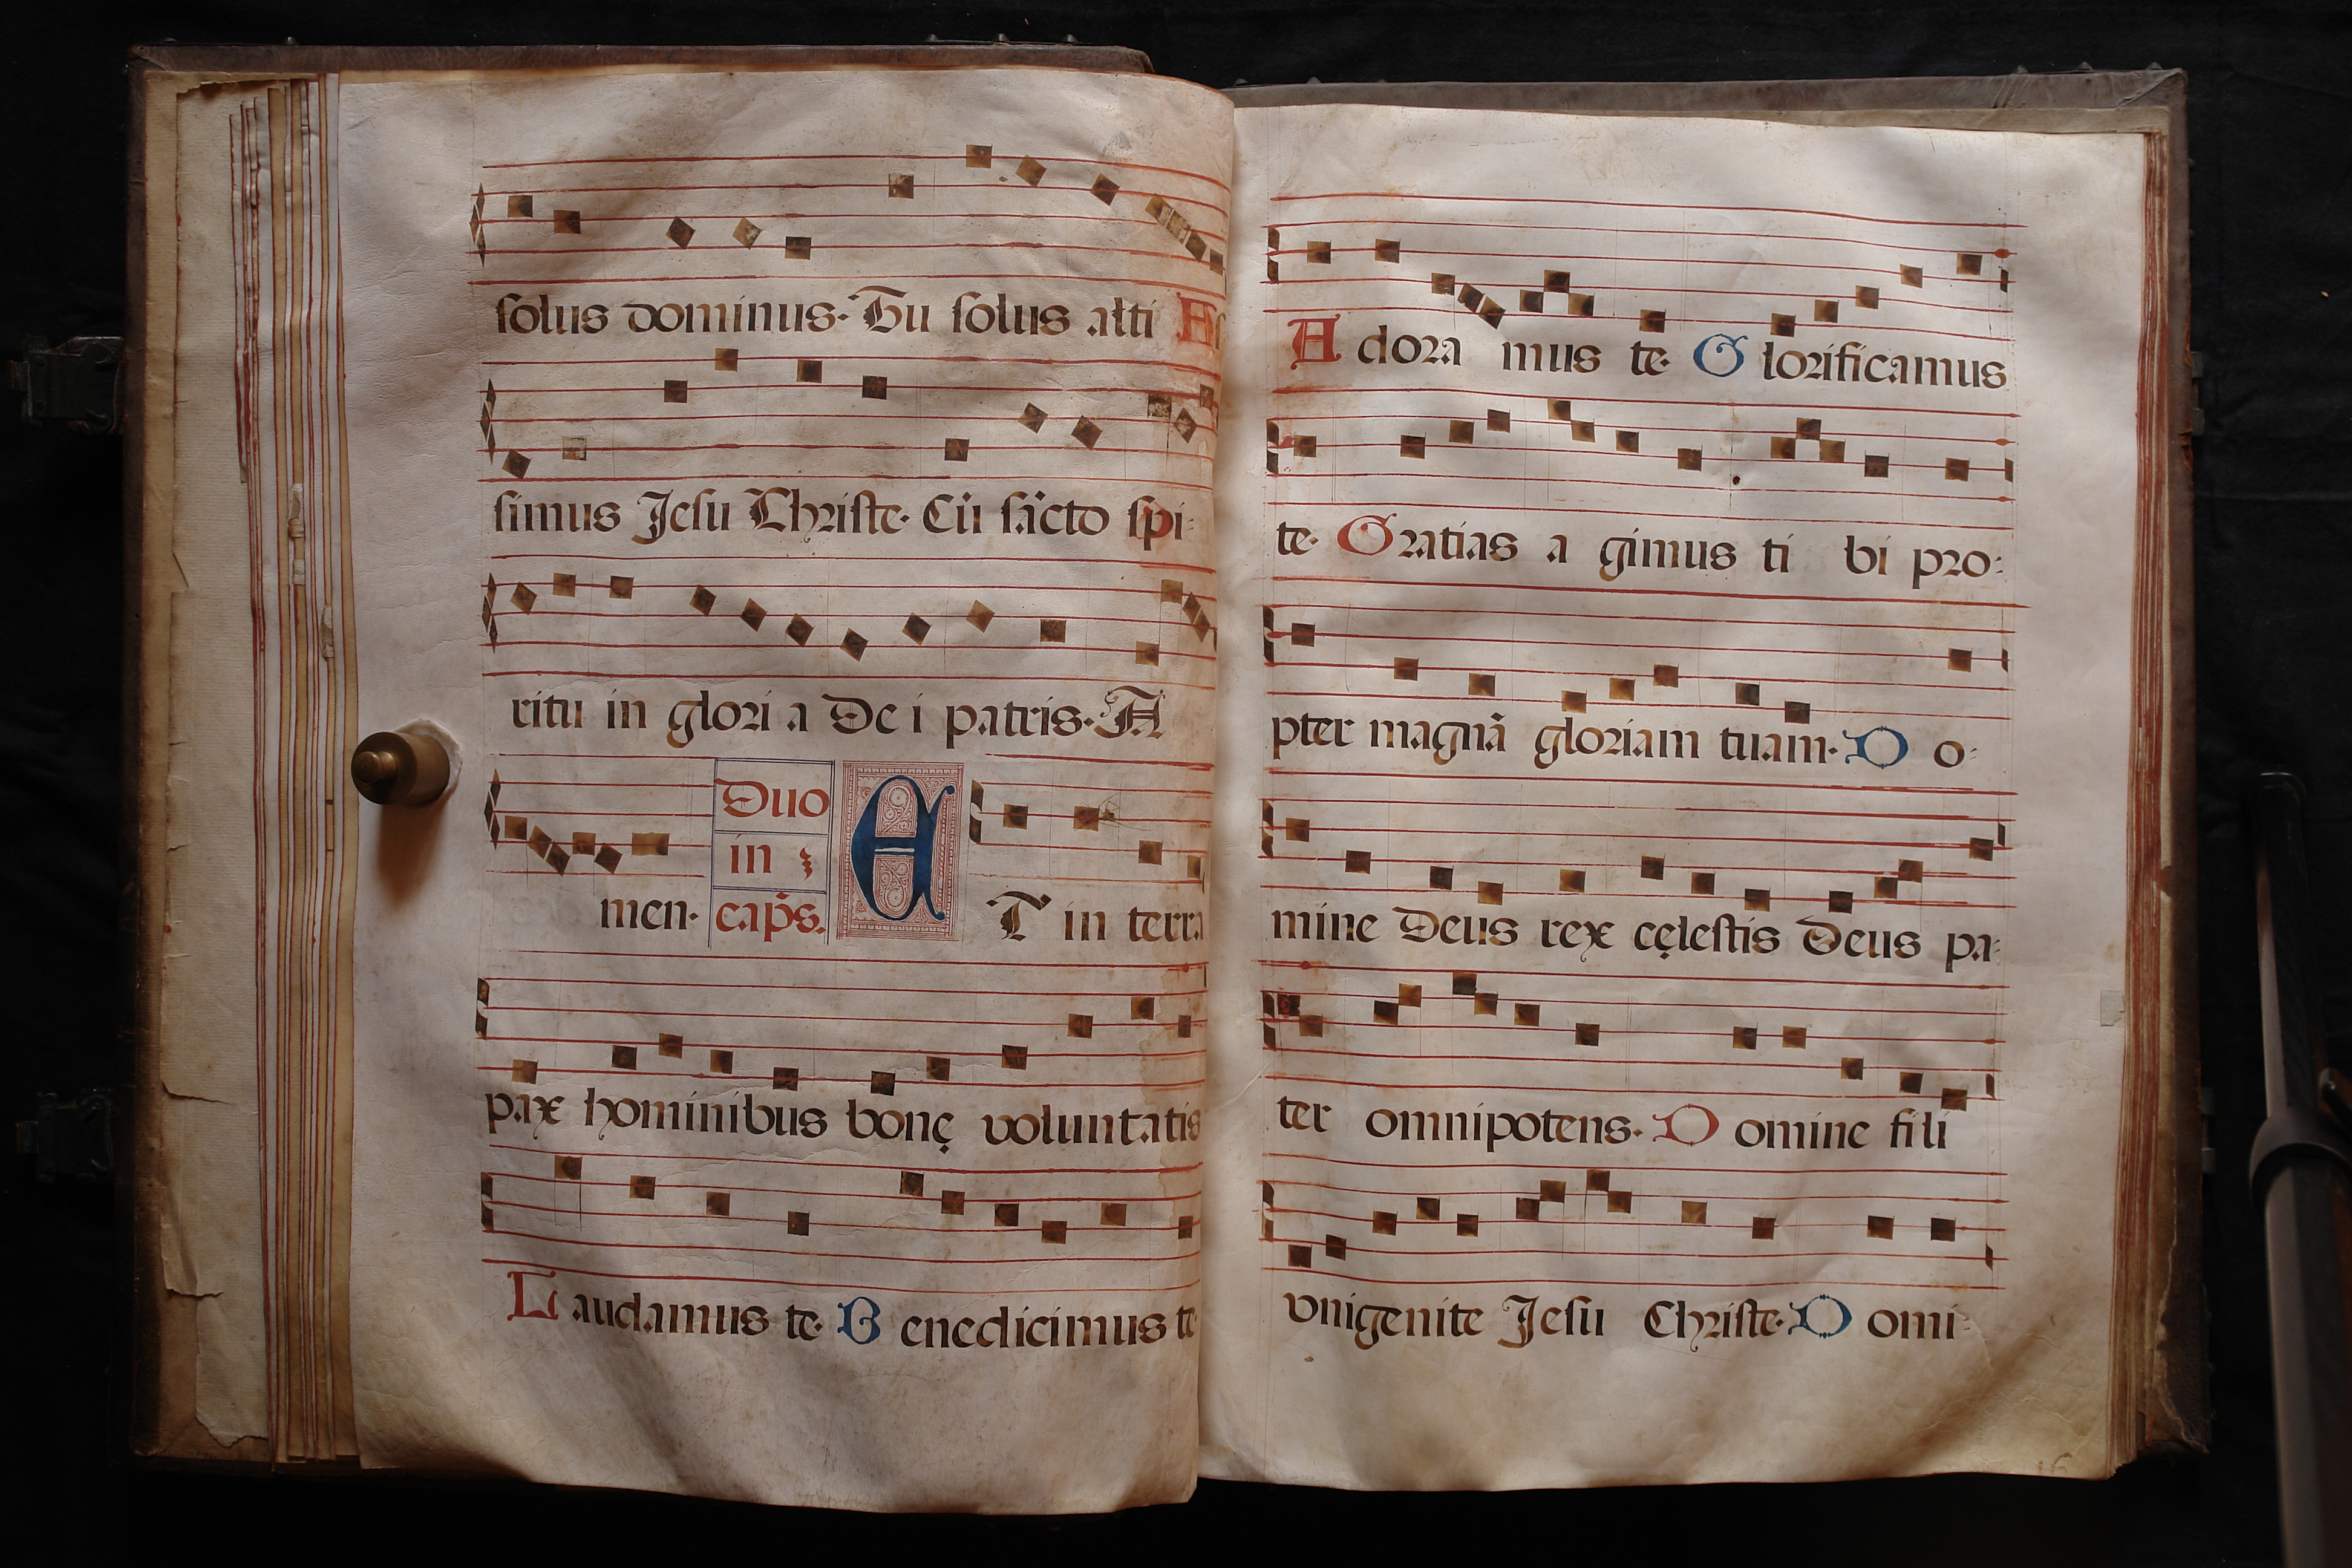 solus dominus. Tu solus alti
simus Jesu Christe. Cũ sãcto spi-
ritu in glori a De i patris. A
men. Duo in caps. ET in terra
pax hominibus bonę voluntatis
Laudamus te. Benedicimus te
A dora mus te. Glorificamus
te. Gratias a gimus ti bi pro-
pter magnã gloriam tuam. D o-
mine Deus rex cęlestis Deus pa-
ter omnipotens. Domine fili
vnigenite Jesu Christe. D omi-